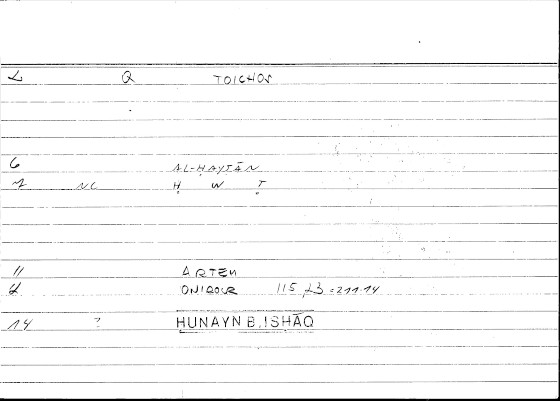 L Q TOICHOS
6 AL-ḤAYṬĀN
7 NC Ḥ W Ṭ
11 ARTEM
d ONIROCR 115 f3 = 211.14
14 ? HUNAYN B. ISHĀQ